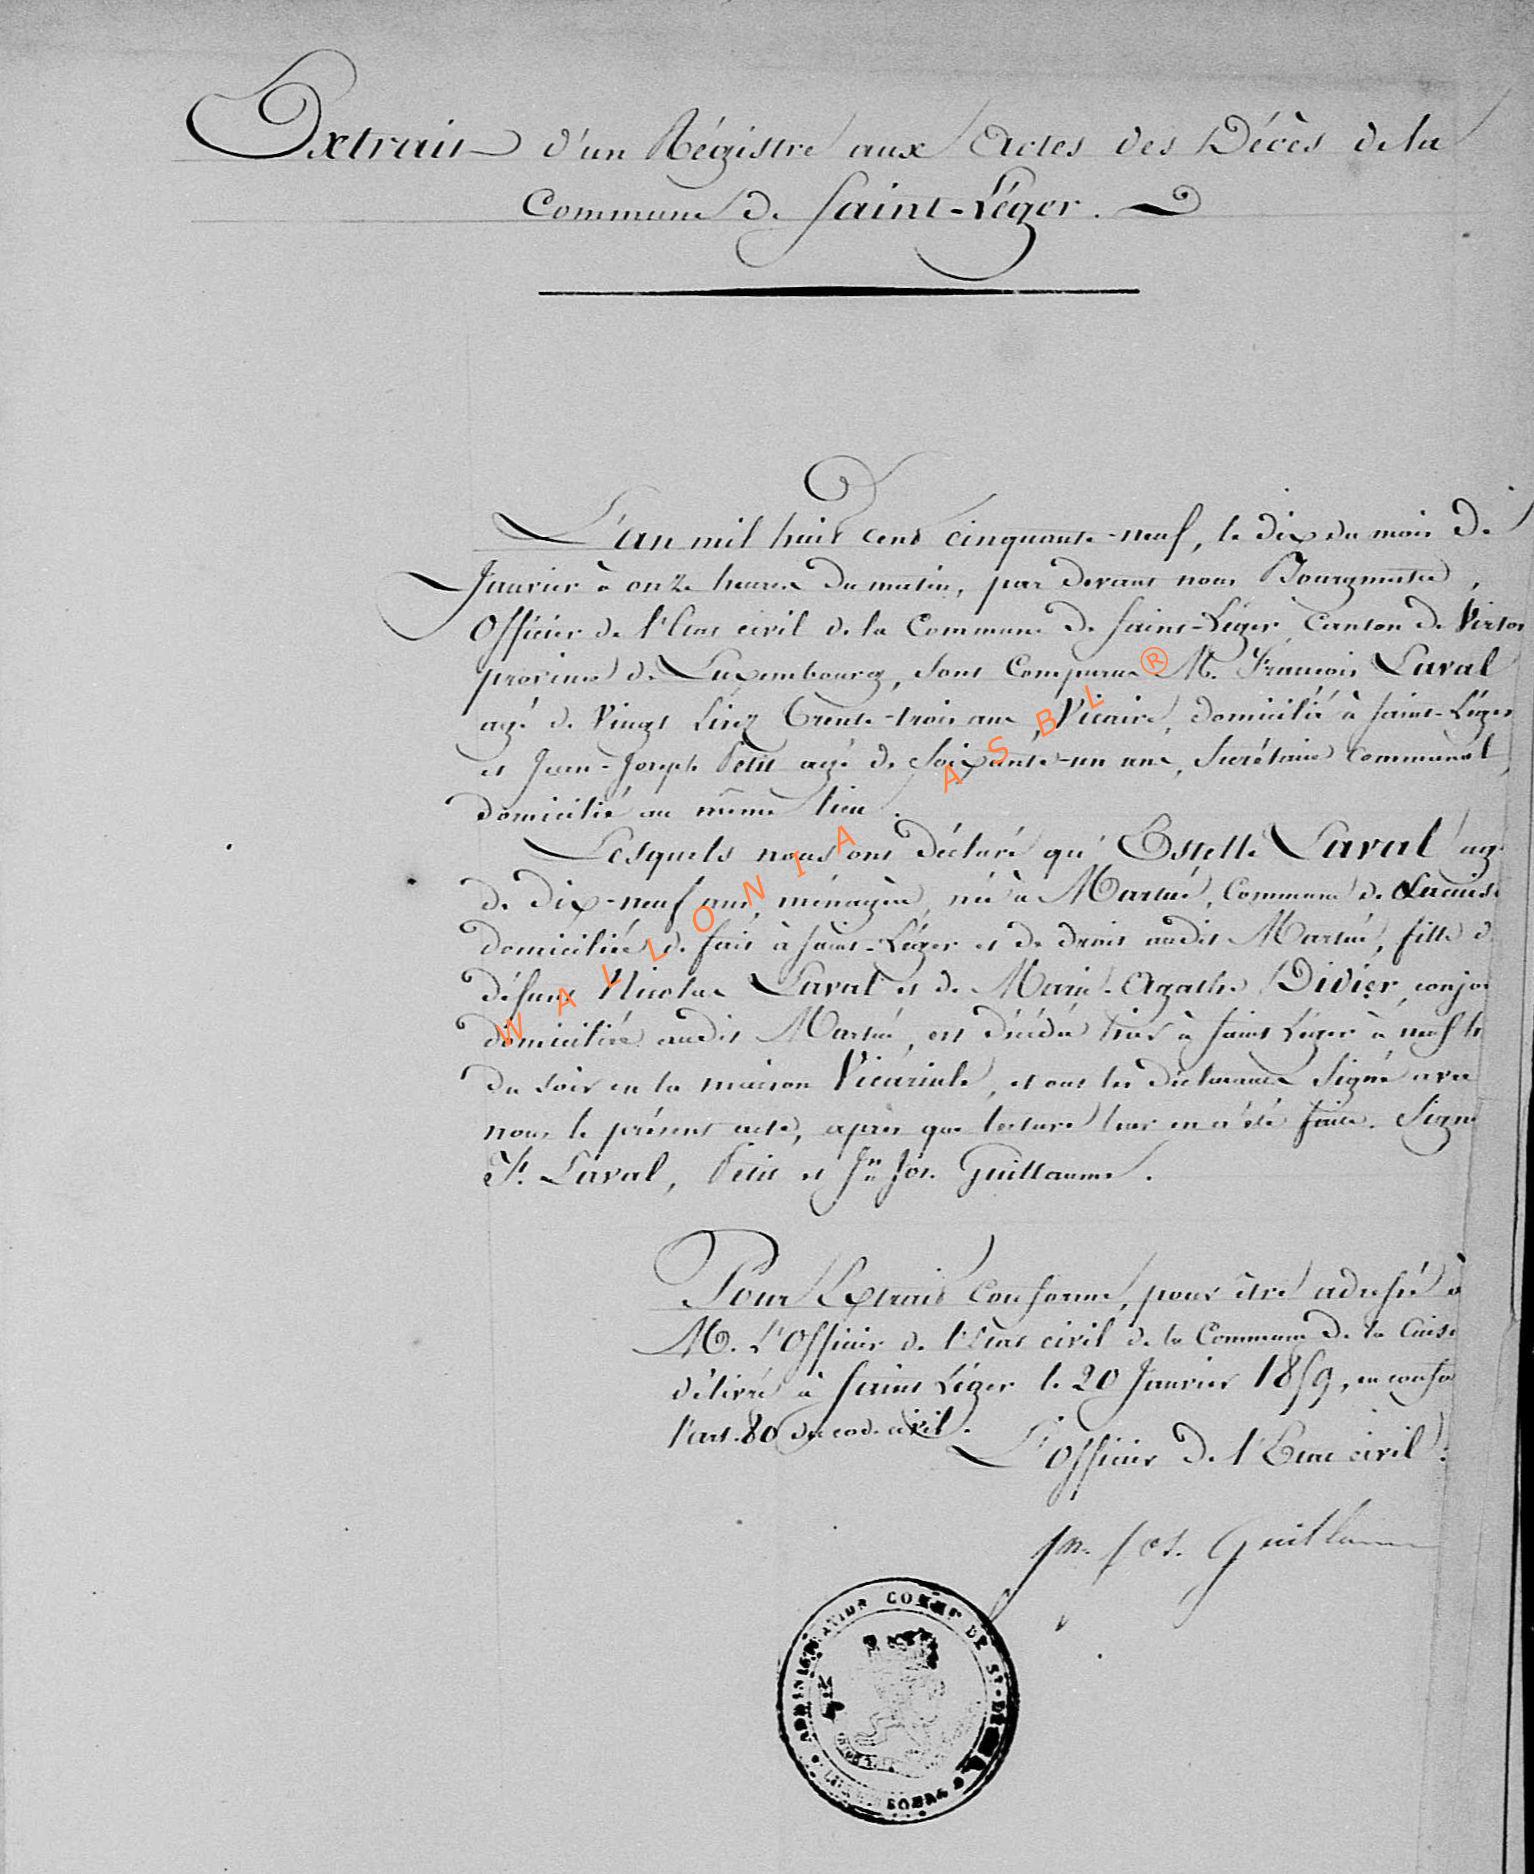 Extrait d'un Régistre aux Actes des Décès de la
Commune de Saint-Léger.
L'an mil huit cent cinquante-neuf, le dix du mois de
Janvier à onze heures du matin, par devant nous Bourgmestre,
Officier de l'Etat civil de la Commune de Saint-Léger, Canton de Virton
province de Luxembourg, sont Comparus M. François Laval
agé de Vingt Cinq Trente-trois ans, Vicaire, domicilié à Saint-Léger
et Jean-Joseph Petit agé de Soixante-un ans, Secrétaire Communal,
domicilié au même lieu.
Lesquels nous ont déclaré qu'Estelle Laval agé
de dix-neuf ans, ménagère, née à Martué, Commune de Lacuisi
domiciliée de fait à Saint-Léger et de droit audit Martué, fille d
défunt Nicolas Laval et de Marie-Agathe Didier, conjoi
domiciliés audit Martué, est décédée hier à Saint Léger à neuf h
du soir en la maison Vicariale, et ont les déclarants Signé avec
nous le présent acte, après que lecture leur en a été faite. Signé
F. Laval, Petit et Jn Jos. Guillaume.
Pour Extrait Conforme, pour être adressé à
M. L'Officier de l'Etat civil de la Commune de la Cuisi
délivré à Saint Léger le 20 Janvier 1859, en confor
l'art. 80 du cod. civil.
L'Officier de l'Etat civil.
Jn. Jos. Guillaume
ADMINISTRATION COMMle DE ST-LÉGER
WALLONIA ASBL ®